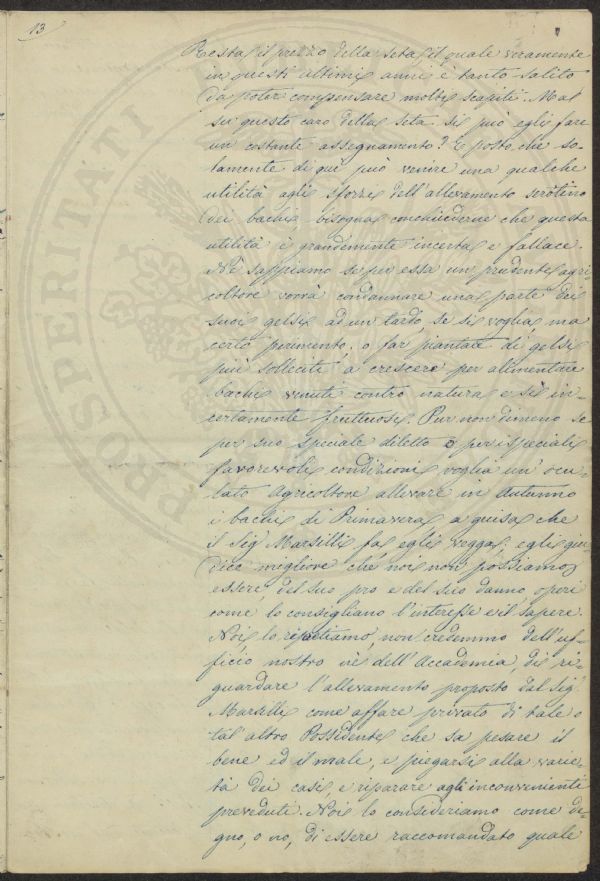 13
Resta il prezzo della seta il quale veramente
in questi ultimi anni è tanto salito
da poter compensare molti scapiti. Ma
su questo caro della seta si può egli fare
un costante assegnamento? E posto che so-
lamente di qui può venire una qualche
utilità agli sforzi dell'allevamento serotino
dei bachi bisogna conchiuderne che questa
utilità è grandemente incerta e fallace.
Nè sappiamo se per essa un prudente agri-
coltore vorrà condannare una parte dei
suoi gelsi ad un tardo, se si voglia, ma
certo perimento; o far piantate di gelsi
più solleciti a crescere per alimentare
bachi venuti contro natura e sì in-
certamente fruttuosi. Pur non dimeno se
per suo speciale diletto o per ispeciali
favorevoli condizioni voglia un' ocu-
lato Agricoltore allevare in Autunno
i bachi di Primavera, a guisa che
il Sig.r Marsilli fa, egli vegga; egli giu-
dice migliore che noi non possiamo
essere, del suo pro e del suo danno, operi
come lo consigliano l'interesse e il sapere.
Noi, lo ripetiamo, non credemmo dell'uf-
ficio nostro nè dell'Accademia, di ri-
guardare l'allevamento proposto dal Sig.r
Marsilli come affare privato di tale o
tal altro Possidente che sa pesare il
bene ed il male, e piegarsi alla varie-
tà dei casi, e riparare agli inconvenienti
preveduti. Noi lo consideriamo come de-
gno, o no, di essere raccomandato quale
PROSPERITATI